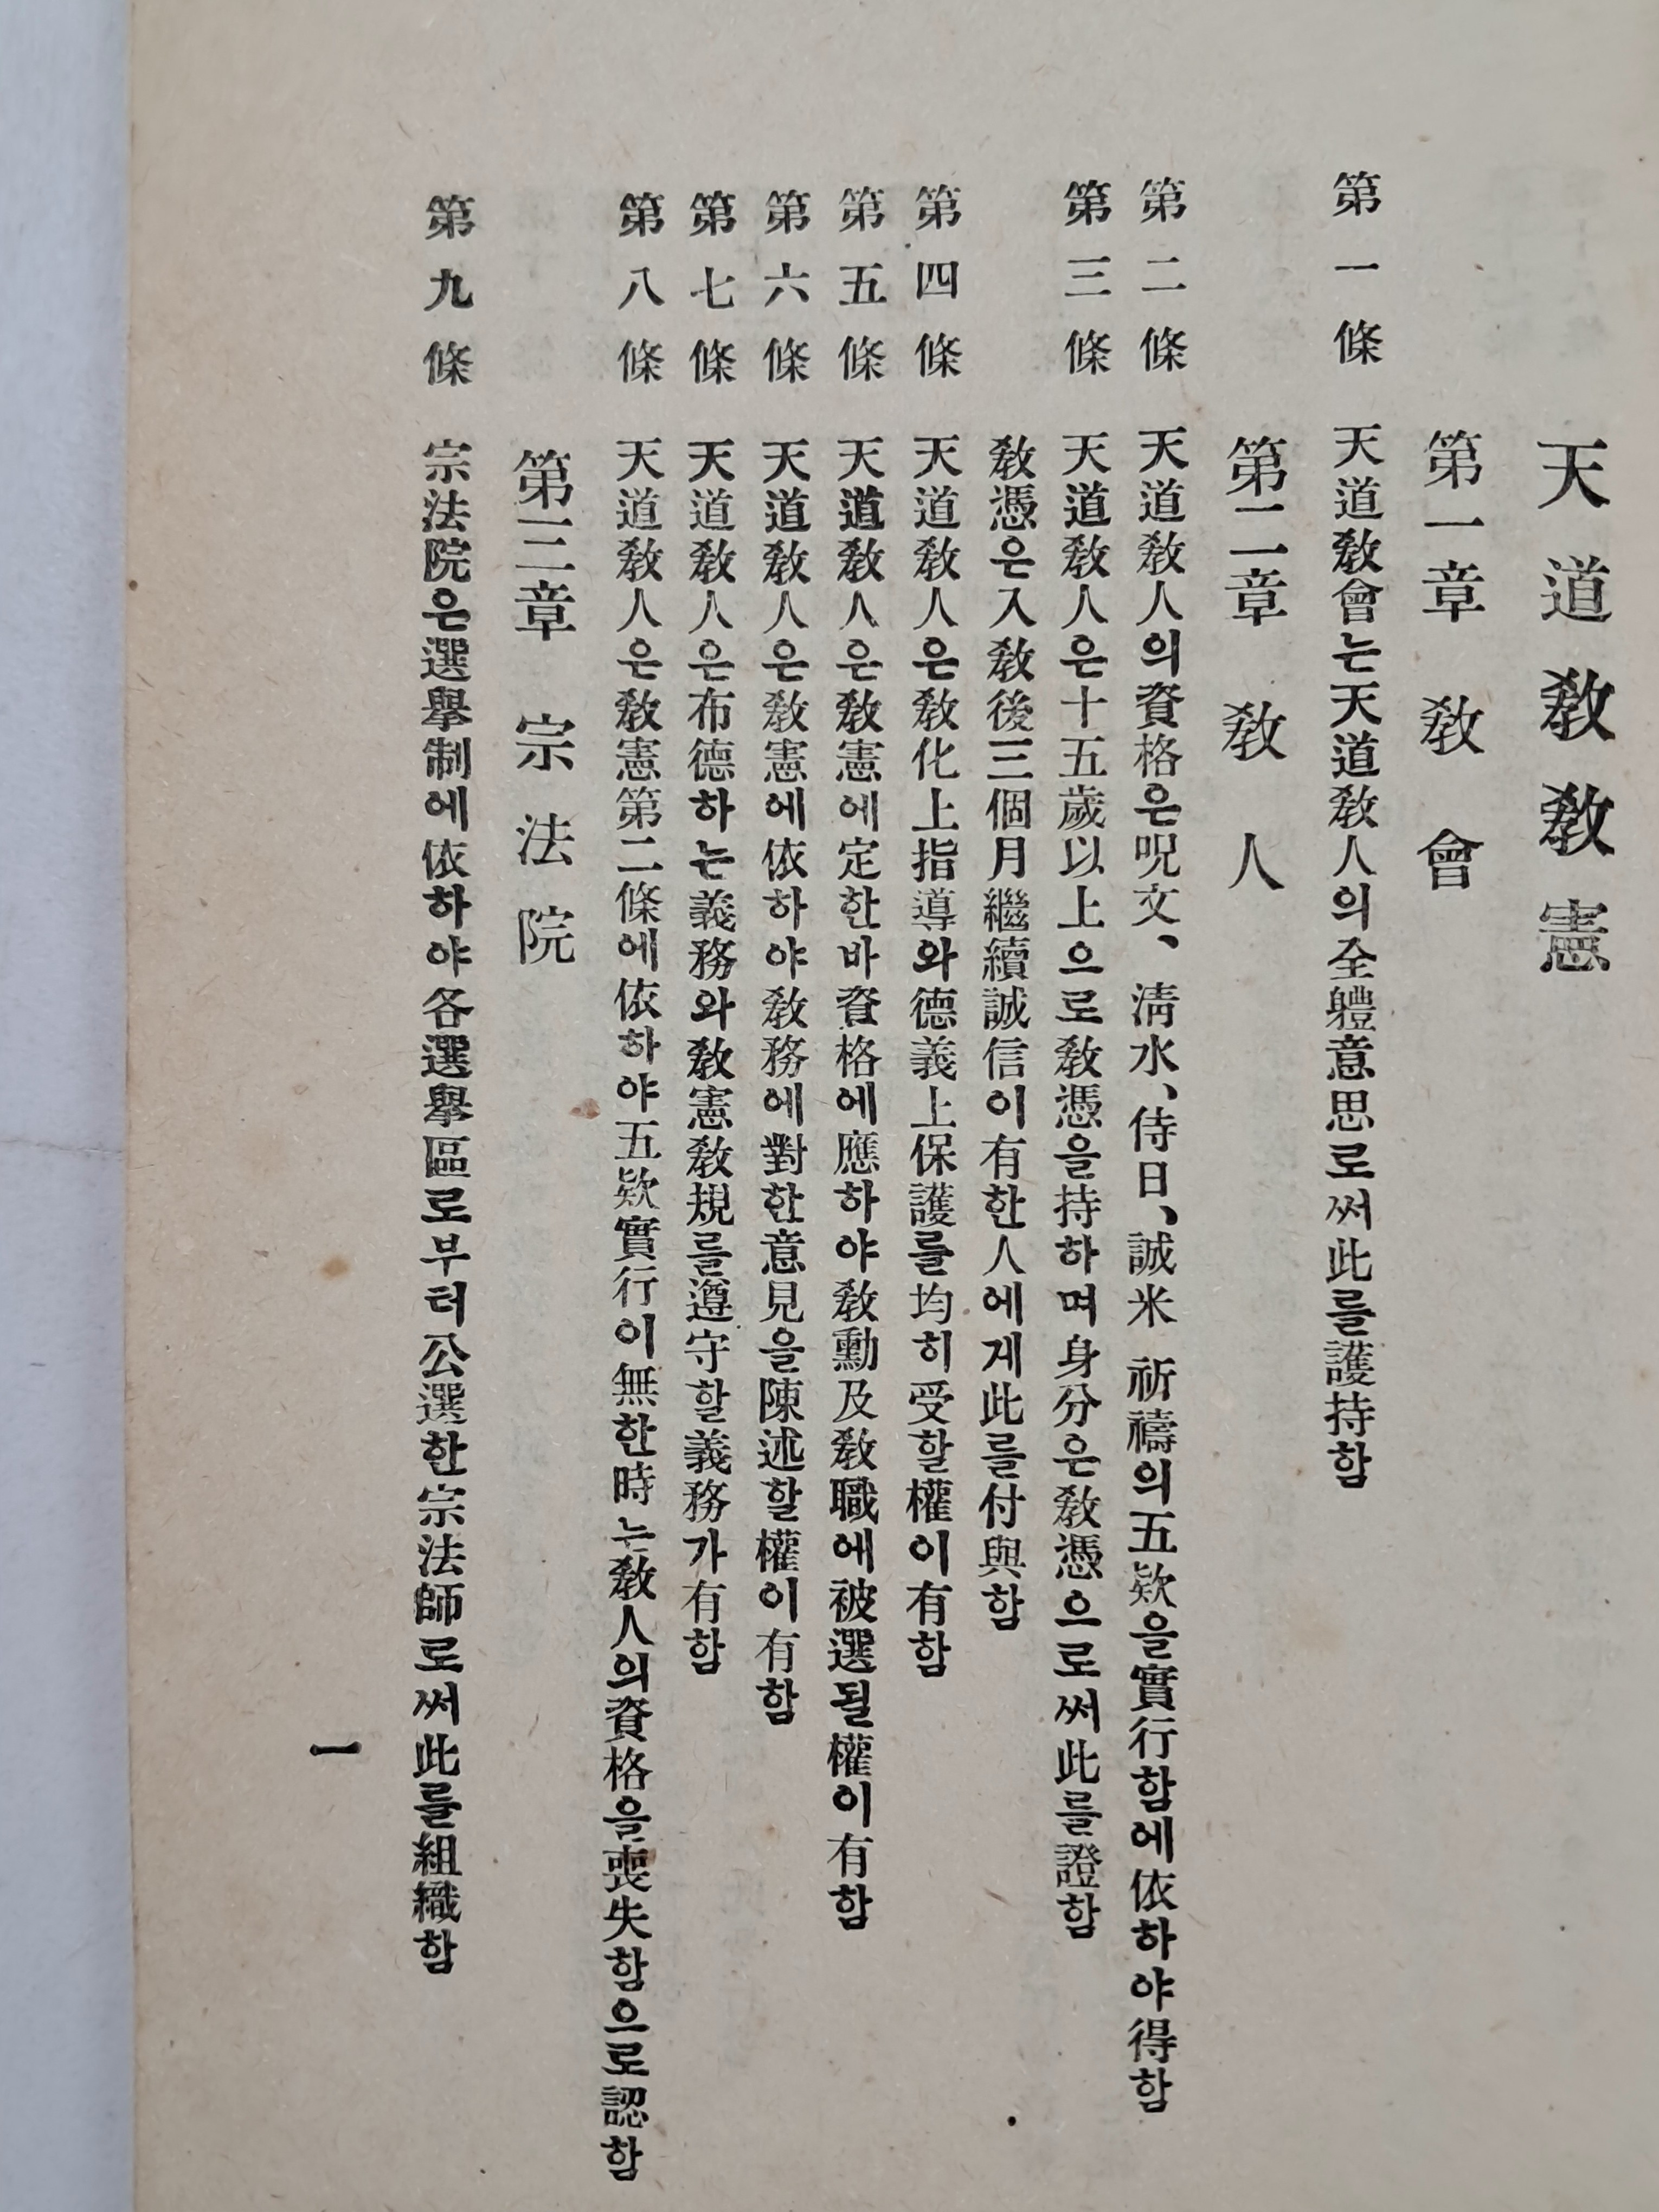 天道敎敎憲
第一章 敎會
第一條 天道敎會는天道敎人의全軆意思로써此를護持함
第二章 敎人
第二條 天道敎人의資格은呪文、淸水、侍日、誠米 祈禱의五欵을實行함에依하야得함
第三條 天道敎人은十五歲以上으로敎憑을持하며身分은敎憑으로써此를證함
敎憑은入敎後三個月繼續誠信이有한人에게此를付與함
第四條 天道敎人은敎化上指導와德義上保護를均히受할權이有함
第五條 天道敎人은敎憲에定한바資格에應하야敎勳及敎職에被選될權이有함
第六條 天道敎人은敎憲에依하야敎務에對한意見을陳述할權이有함
第七條 天道敎人은布德하는義務와敎憲敎規를遵守할義務가有함
第八條 天道敎人은敎憲第二條에依하야五欵實行이無한時는敎人의資格을喪失함으로認함
第三章 宗法院
第九條 宗法院은選擧制에依하야各選擧區로부터公選한宗法師로써此를組織함
一